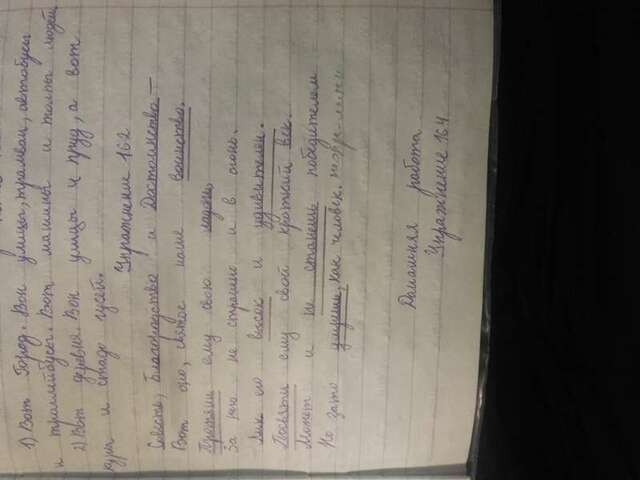 1) Вот Город. Вон улица, трамваи, автобусы
и троллейбусы. Вот машины и толпы людей
2) Вот деревня. Вон улицы и пруд, а вот
куры и стадо гусей.
Упражнение 162
Совесть, Благородство и Достоинство –
Вот оно, святое наше воинство.
Протяни ему свою ладонь,
За него не страшно и в огонь.
Лик его высок и удивителен.
Посвяти ему свой краткий век.
Может и не станешь победителем
Но зато умрешь, как человек.
Домашняя работа
Упражнение 164